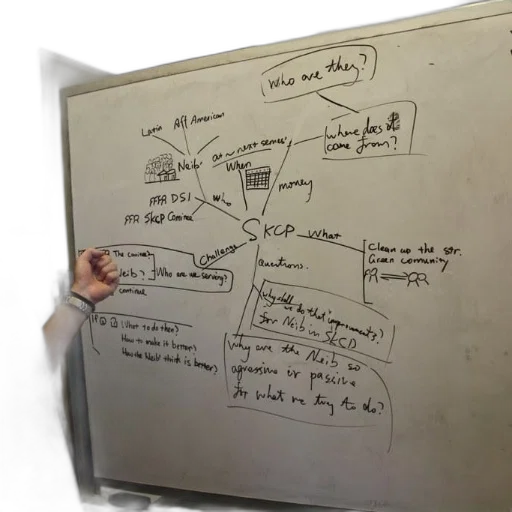 Who are they?
Latin Aff American
where does it
come from?
at ~ next semes'
When
Neib'
money
DSI
SKCP Comitee
SKCP
What
Challenge
Clean up the str.
Green community
questions.
The comitee?
Neib?
Who are we serving?
continue
why
we do that improvments?
for Neib in SKCD
What to do then?
How to make it better?
How the Neib' think is better?
Why are the Neib so
agrassive or passive
for what we try to do?